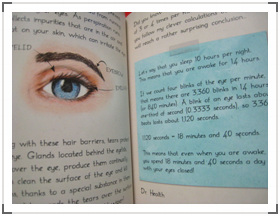 eflects impurities that are in the
es. As perspiration
t on your skin, which can irritate the
EYELID
EYEBROW
with these hair barriers, tears prote
eye. Glands located behind the eyelid
ver the eye, produce them continually
clean the surface of the eye and
thanks to a special substance in
the tears over the surface
Did you know
of 3 or 4 times per
you follow my clever calculations
will reach a rather surprising conclusion...
Let's say that you sleep 10 hours per night.
This means that you are awake for 14 hours.
If we count four blinks of the eye per minute,
that means there are 3360 blinks in 14 hours
(or 840 minutes). A blink of an eye lasts about
one third of second (0.3333 seconds), so 3360
blinks lasts about 1120 seconds.
1120 seconds = 18 minutes and 40 seconds.
This means that even when you are awake,
you spend 18 minutes and 40 seconds a day
with your eyes closed!
Dr. Health